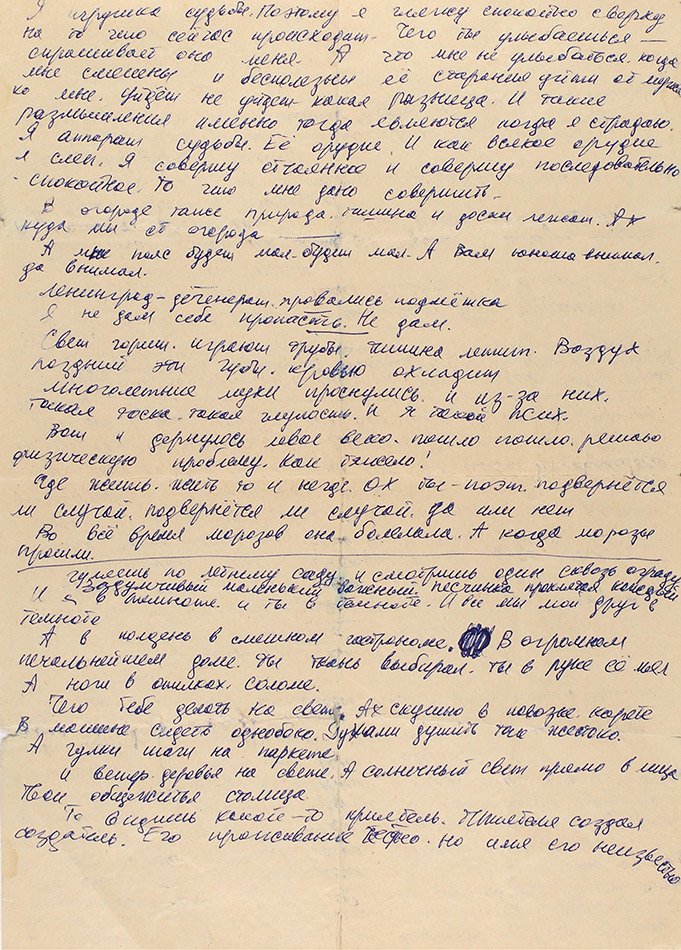 Я игрушка судьбы. Поэтому я гляжу спокойно сверху
на то что сейчас происходит. Чего ты улыбаешься —
спрашивает она меня. А что мне не улыбаться когда
мне смешны и бесполезны её старания уйти от мужа
ко мне. Уйдёт не уйдёт какая разница. И такие
размышления именно тогда являются когда я страдаю.
Я аппарат судьбы. Её орудие. И как всякое орудие
я слеп. Я совершу отчаянно и совершу последовательно
- спокойное. То что мне дано совершить.
В огороде также природа. тишина и доски лежат. Ах
куда мы от огорода
А мне пояс будет мал. будет мал. А Вам юноша внимал.
да внимал.
Ленинград - дегенерат. провались подмётка
Я не дам себе пропасть. Не дам.
Свет горит. играют трубы. тишина лепит. Воздух
поздний эти губы. кровью охладит
многолетние муки проснулись. и из-за них.
такая тоска. такая глупость. и я такой псих.
Вот и дернулось левое веко. пошло пошло. решаю
физическую проблему. Как тяжело!
Где жить. жить то и негде. Ох ты - поэт. подвернётся
ли случай. подвернётся ли случай. да или нет
Во всё время морозов она болела. А когда морозы
прошли.
гуляешь по летнему саду и смотришь один сквозь ограду
задумчивый маленький важный. песчинка
И в темноте. и ты в темноте. И все мы мой друг в
темноте
А в полдень в смешном гастрономе. В огромном
печальнейшем доме. Ты ткань выбирал. ты в руке её мял
А ноги в опилках. соломе.
Чего тебе делать на свете. Ах скушно в повозке. карете
В машине сидеть однобоко. Духами душить так жестоко.
А гулки шаги на паркете
и ветер. деревья на свете. А солнечный свет прямо в лица
Твои общежитья столица
То видишь какое-то Создал
создатель. Его проживание но имя его неизвестно